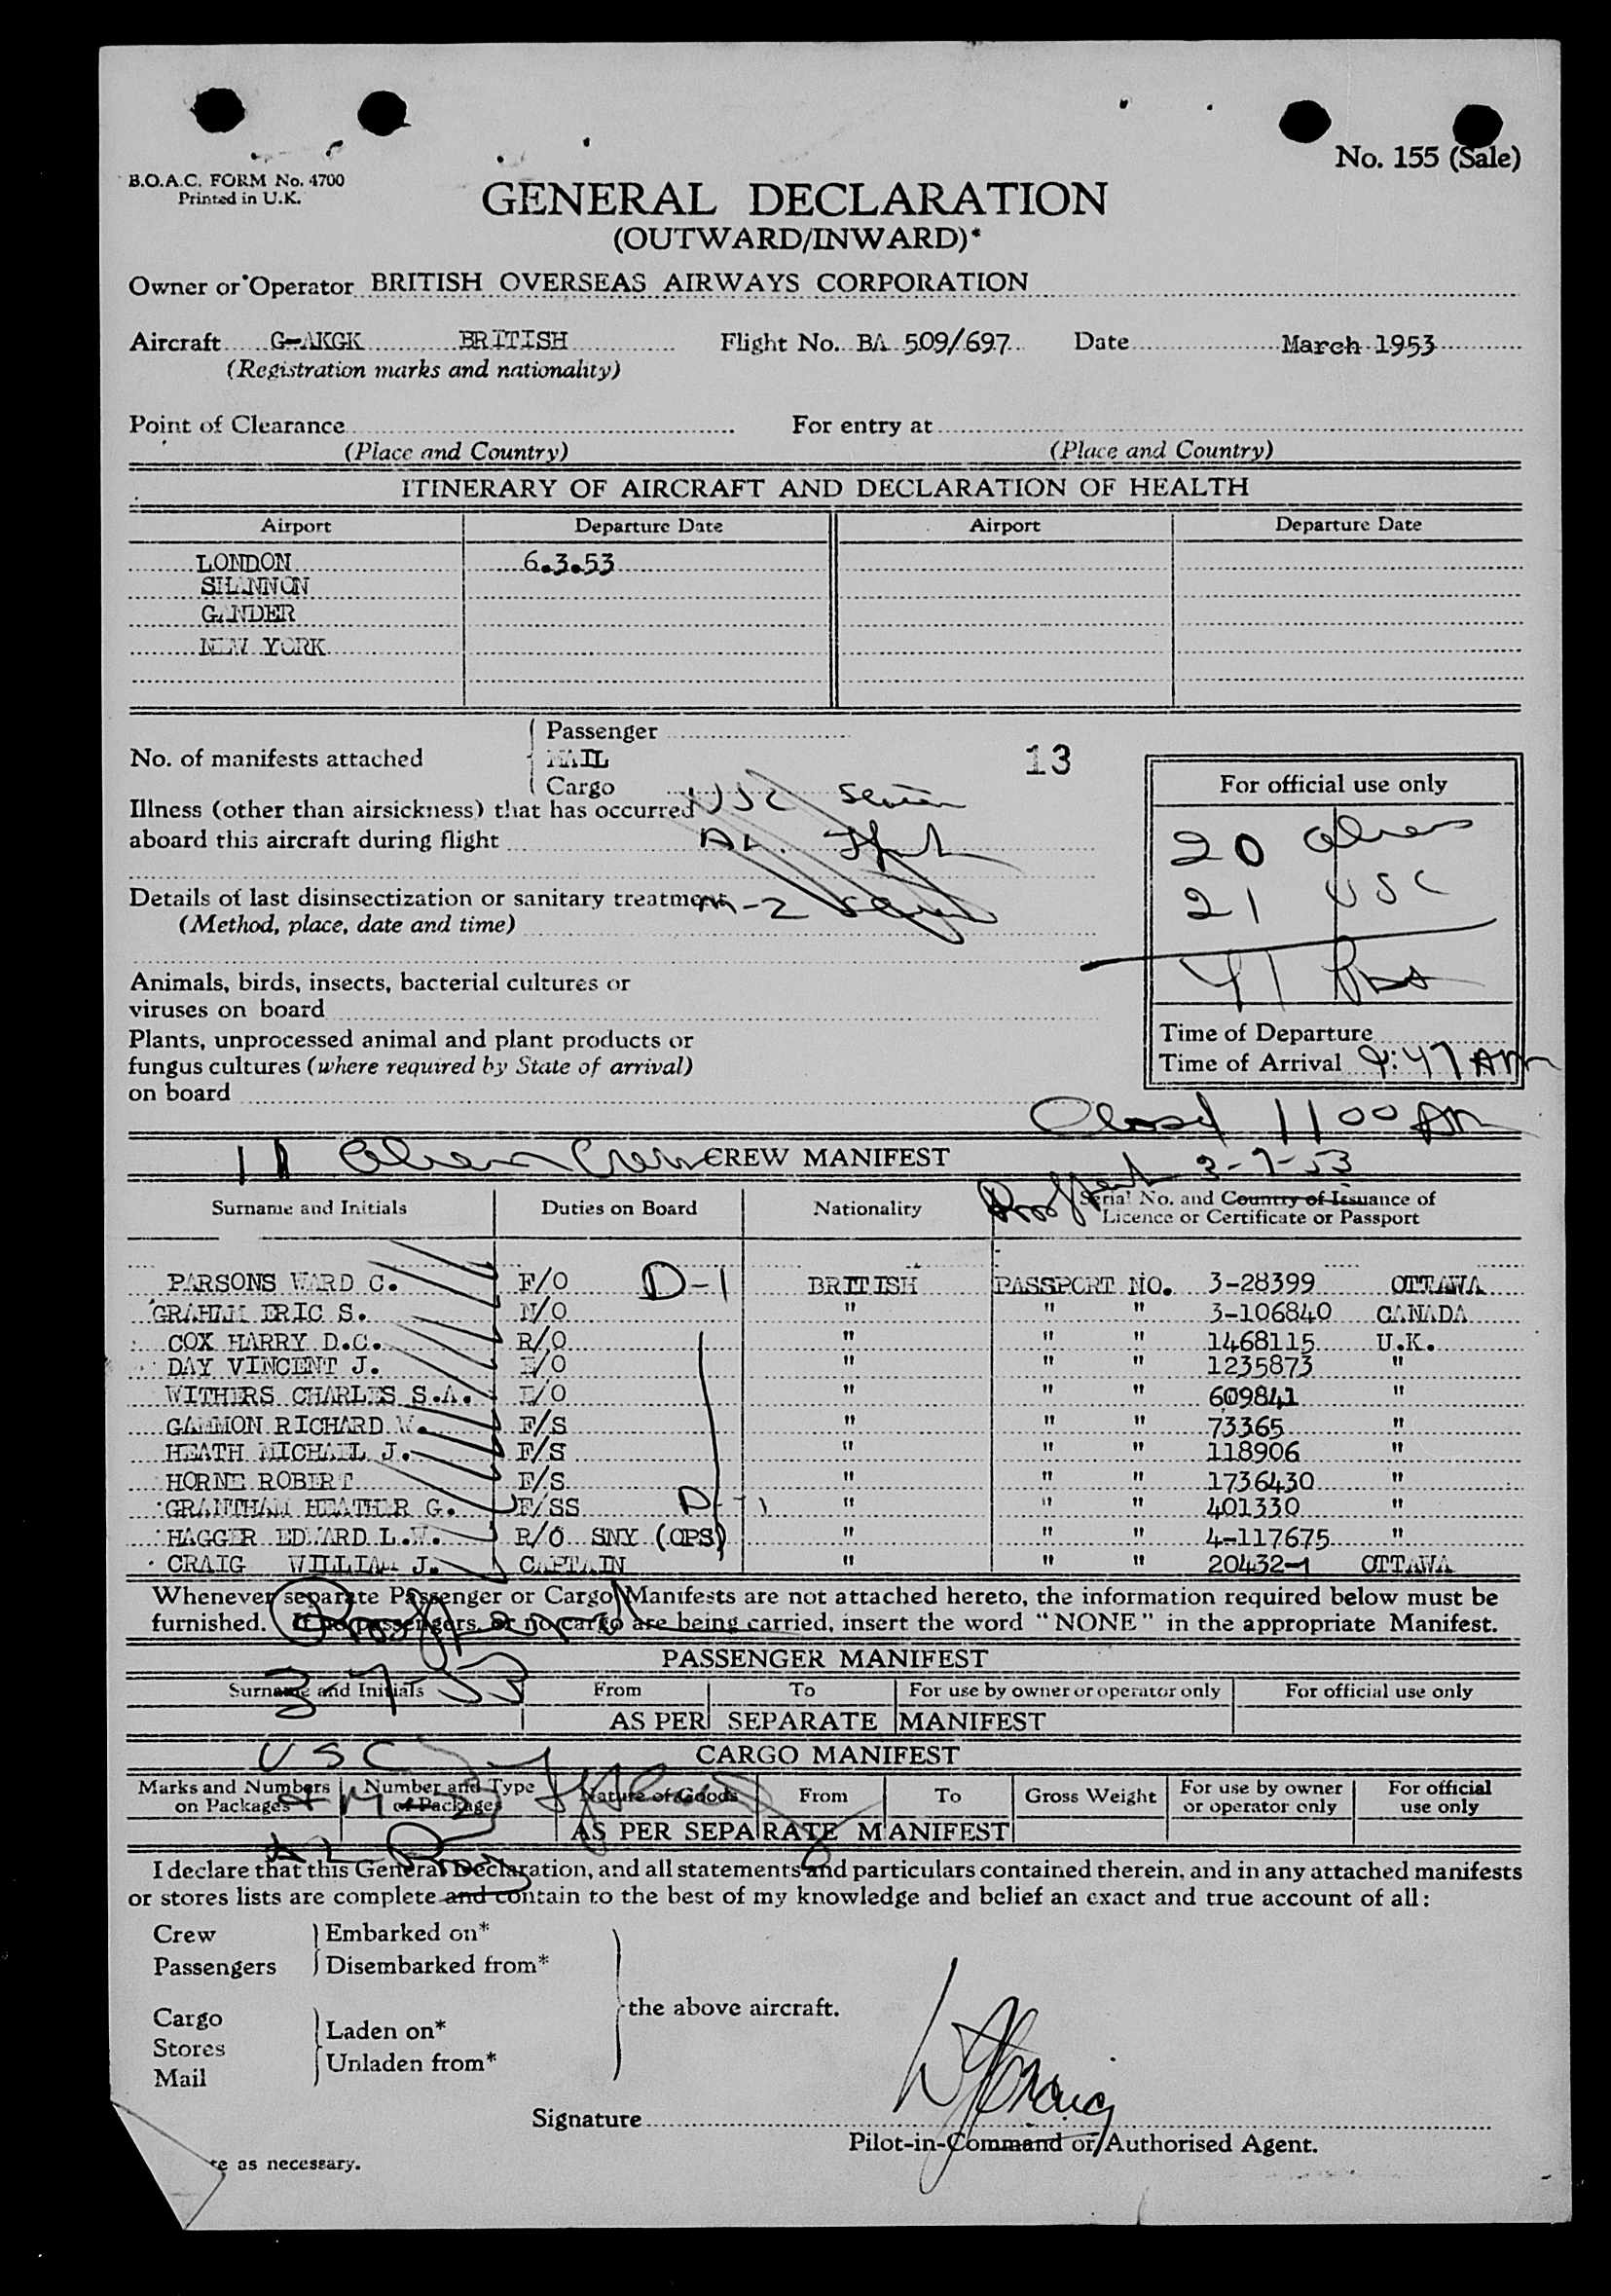 No. 155 (Sale)
B.O.A.C. FORM No. 4700
Printed in U.K.
GENERAL DECLARATION
(OUTWARD/INWARD)*
Owner or Operator BRITISH OVERSEAS AIRWAYS CORPORATION
Aircraft G-AKGK BRITISH Flight No. BA 509/697 Date March 1953
(Registration marks and nationality)
Point of Clearance For entry at
(Place and Country) (Place and Country)
ITINERARY OF AIRCRAFT AND DECLARATION OF HEALTH
Airport Departure Date Airport Departure Date
LONDON 6.3.53
SHANNON
GANDER
NEW YORK
Passenger
No. of manifests attached MAIL 13
Cargo
For official use only
Illness (other than airsickness) that has occurred USC
aboard this aircraft during flight AL.
20
21 USC
Details of last disinsectization or sanitary treatment M-2
(Method, place, date and time)
41
Animals, birds, insects, bacterial cultures or
viruses on board
Plants, unprocessed animal and plant products or
fungus cultures (where required by State of arrival)
on board
Time of Departure
Time of Arrival 9:47 AM
Closed 1100 AM
11 Alien Crew CREW MANIFEST 3-7-53
Surname and Initials Duties on Board Nationality Serial No. and Country of Issuance of
Licence or Certificate or Passport
PARSONS WARD C. F/O D-1 BRITISH PASSPORT NO. 3-28399 OTTAWA
GRAHAM ERIC S. N/O " " " 3-106840 CANADA
COX HARRY D.C. R/O " " " 1468115 U.K.
DAY VINCENT J. E/O " " " 1235873 "
WITHERS CHARLES S.A. E/O " " " 609841 "
GAMMON RICHARD W. F/S " " " 73365 "
HEATH MICHAEL J. F/S " " " 118906 "
HORNE ROBERT F/S " " " 1736430 "
GRANTHAM HEATHER G. F/SS D-1 " " " 401330 "
HAGGER EDWARD L.W. R/O SNY (OPS) " " " 4-117675 "
CRAIG WILLIAM J. CAPTAIN " " " 20432-1 OTTAWA
Whenever separate Passenger or Cargo Manifests are not attached hereto, the information required below must be
furnished. If no passengers or no cargo are being carried, insert the word "NONE" in the appropriate Manifest.
PASSENGER MANIFEST
3-7-53
Surname and Initials From To For use by owner or operator only For official use only
AS PER SEPARATE MANIFEST
USC
CARGO MANIFEST
Marks and Numbers on Packages Number and Type of Packages Nature of Goods From To Gross Weight For use by owner or operator only For official use only
AS PER SEPARATE MANIFEST
I declare that this General Declaration, and all statements and particulars contained therein, and in any attached manifests
or stores lists are complete and contain to the best of my knowledge and belief an exact and true account of all:
Crew Embarked on*
Passengers Disembarked from*
the above aircraft.
Cargo
Stores Laden on*
Mail Unladen from*
Signature WJ Craig
Pilot-in-Command or Authorised Agent.
te as necessary.